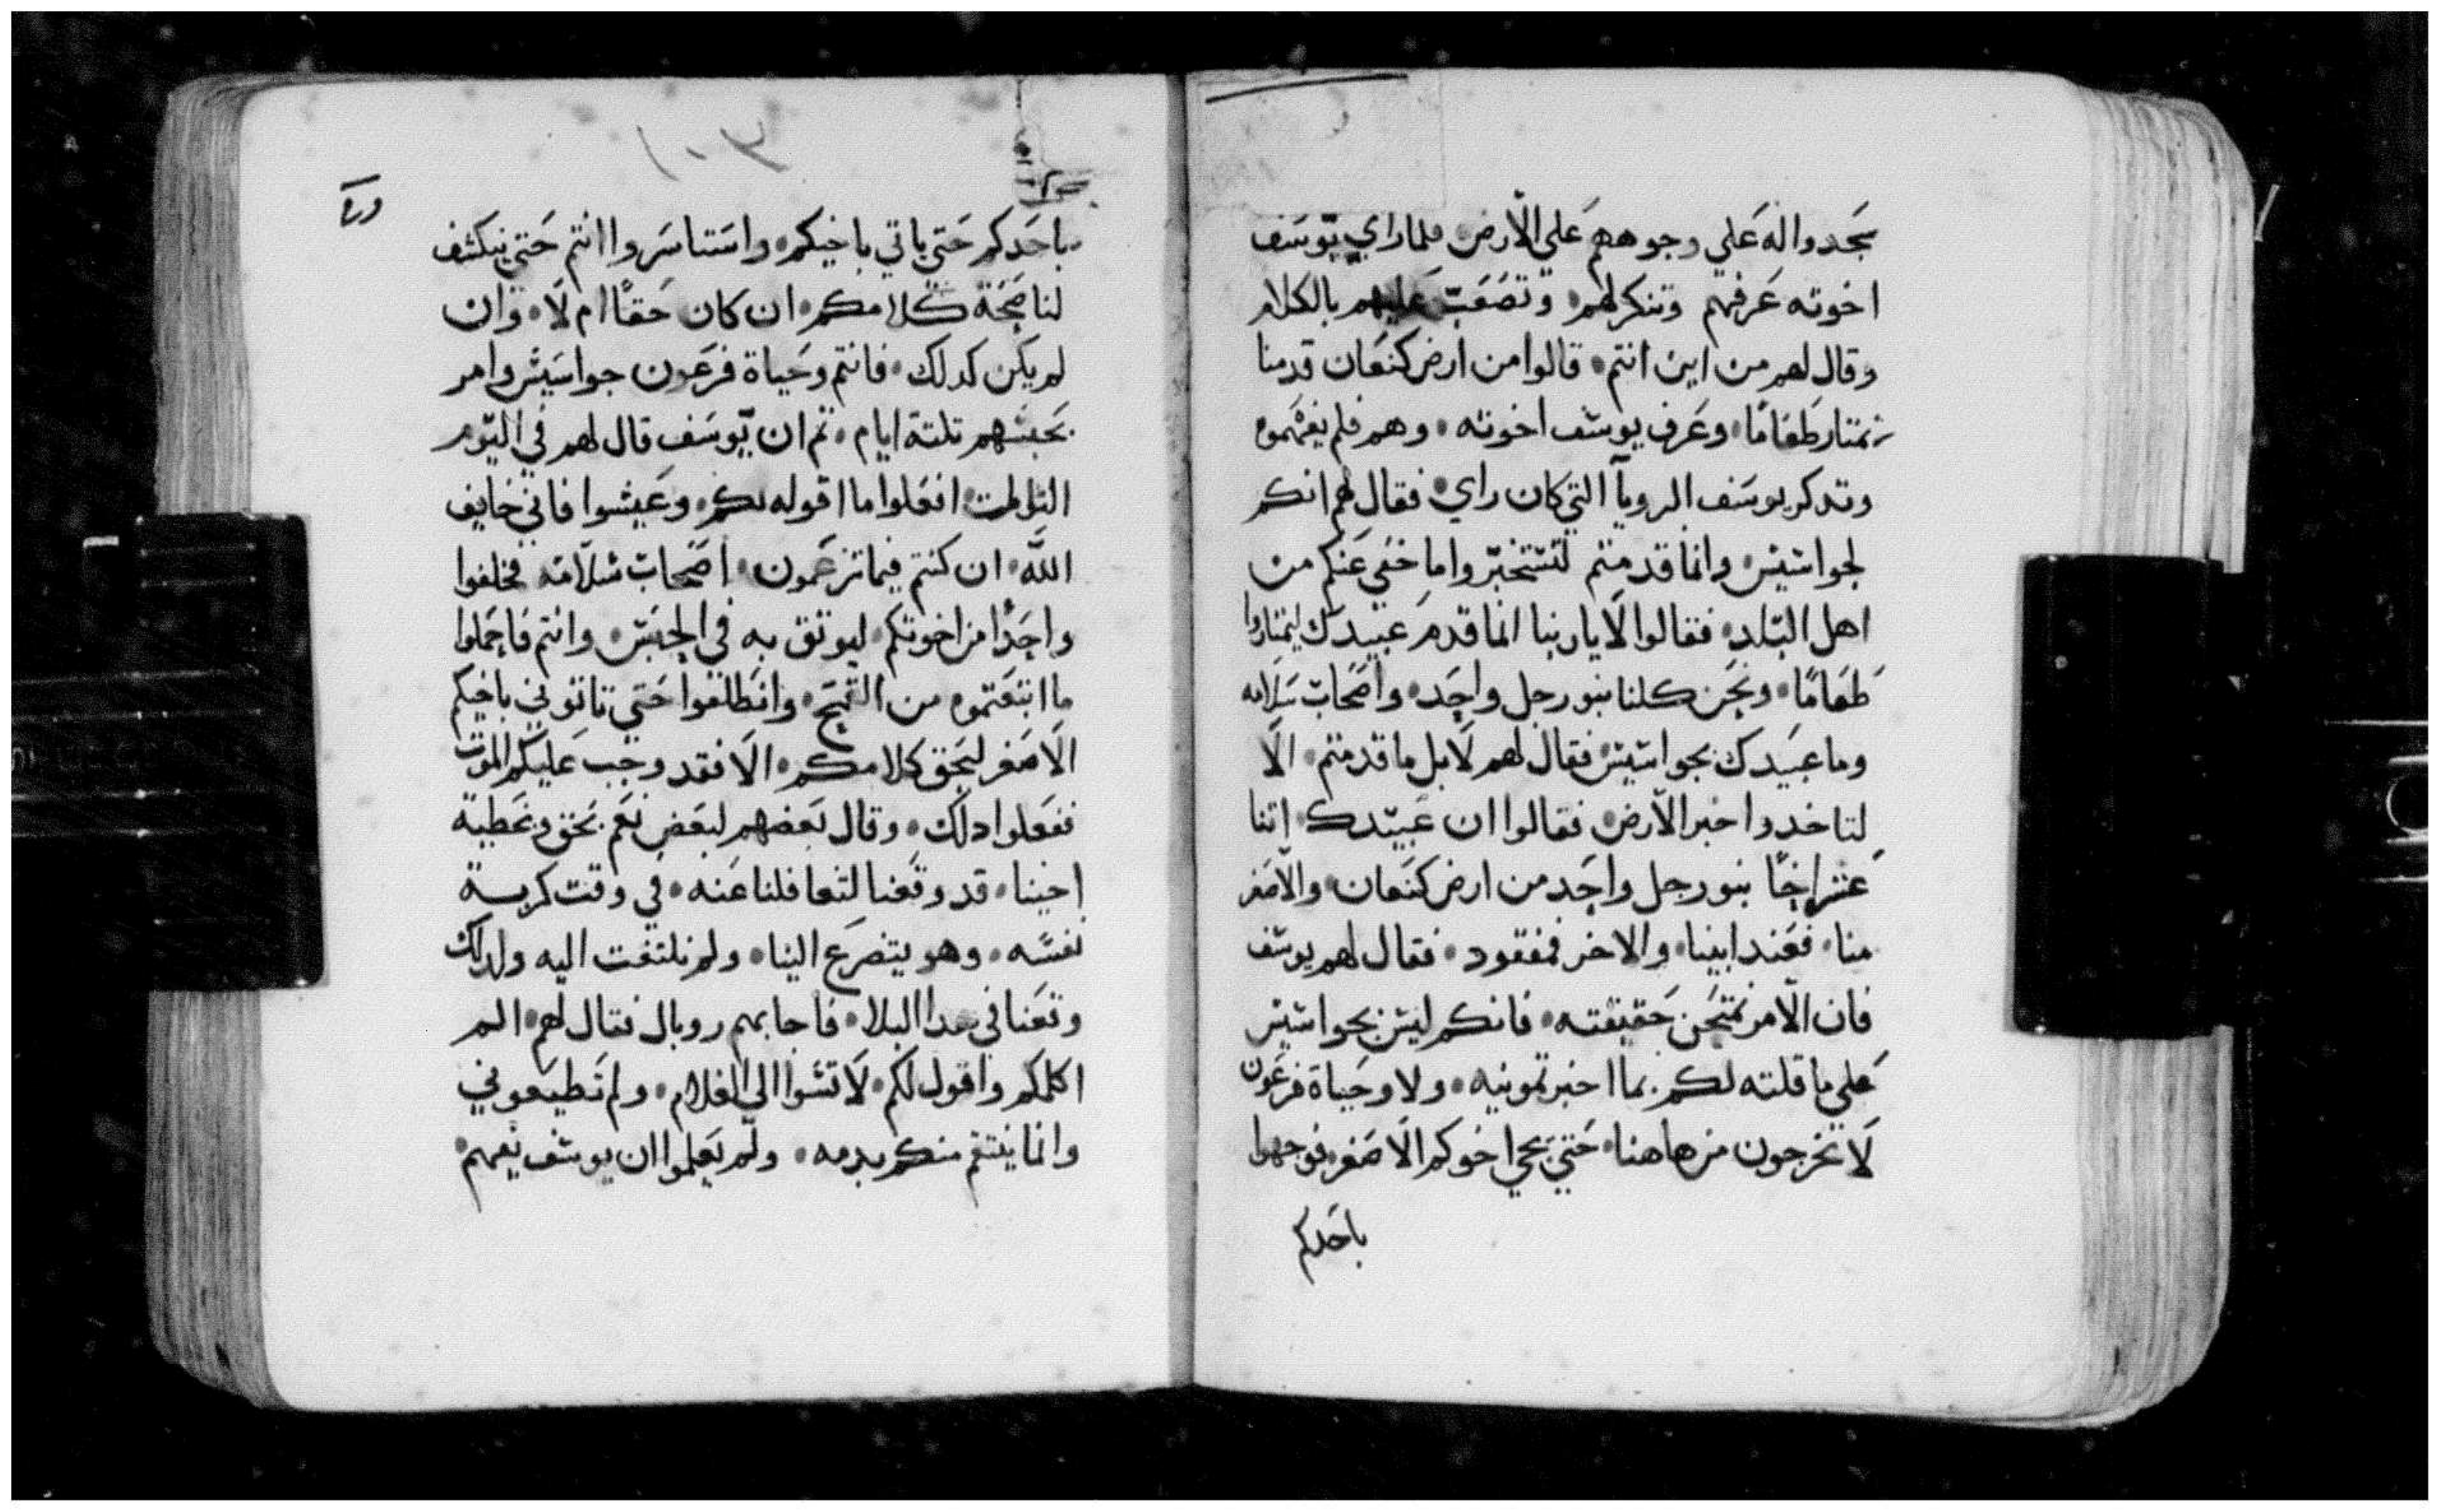 سجدوا له علي وجوههم علي الارض فلما راي يوسف
اخوته عرفهم وتنكر لهم وتصعب عليهم بالكلام
وقال لهم من اين انتم قالوا من ارض كنعان قدمنا
نمتار طعامًا وعرف يوسف اخوته وهم فلم يفهموه
وتدكر يوسف الرويا التي كان راي فقال لهم انكم
لجواسيس وانما قدمتم لتستخبروا ما خفي عنكم من
اهل البلد فقالوا لا يا ربنا انما قدم عبيدك ليمتاروا
طعامًا ونحن كلنا بنو رجل واحد واصحاب سلامه
وما عبيدك بجواسيس فقال لهم لا بل ما قدمتم الا
لتاخدوا خبر الارض فقالوا ان عبيدك اتنا
عشر اخًا بنو رجل واحد من ارض كنعان والاصغر
منا فعند ابينا والاخر فمفقود فقال لهم يوسف
فان الامر نمتحن حقيقته فانكم ليس بجواسيس
علي ما قلته لكم بما اخبرتمونيه ولا وحياة فرعون
لا تخرجون من هاهنا حتي يجي اخوكم الاصغر فوجهوا
باحدكم
١٠٣
باحدكم حتي ياتي باخيكم واستاسروا انتم حتي ينكشف
لنا صحة كلامكم ان كان حقًا ام لا وان
لم يكن كدلك فانتم وحياة فرعون جواسيس وامر
بحبسهم تلتة ايام تم ان يوسف قال لهم في اليوم
التالت افعلوا ما اقوله لكم وعيشوا فاني خايف
اللّه ان كنتم فيما تزعمون اصحاب سلامة فخلفوا
واحدًا من اخوتكم ليوتق به في الحبس وانتم فاحملوا
ما ابتعتموه من القمح وانطلقوا حتي تاتوني باخيكم
الاصغر ليحق كلامكم الا فقد وجب عليكم الموت
ففعلوا دلك وقال بعضهم لبعض نعم بحق وبخطية
اخينا قد وقعنا لتغافلنا عنه في وقت كربة
نفسه وهو يتضرع الينا ولم نلتفت اليه ولدلك
وقعنا في هدا البلا فاجابهم روبال فقال لهم الم
اكلمكم واقول لكم لا تسوا الي الغلام ولم تطيعوني
وانما ينتقم منكم بدمه ولم يعلموا ان يوسف يفهم